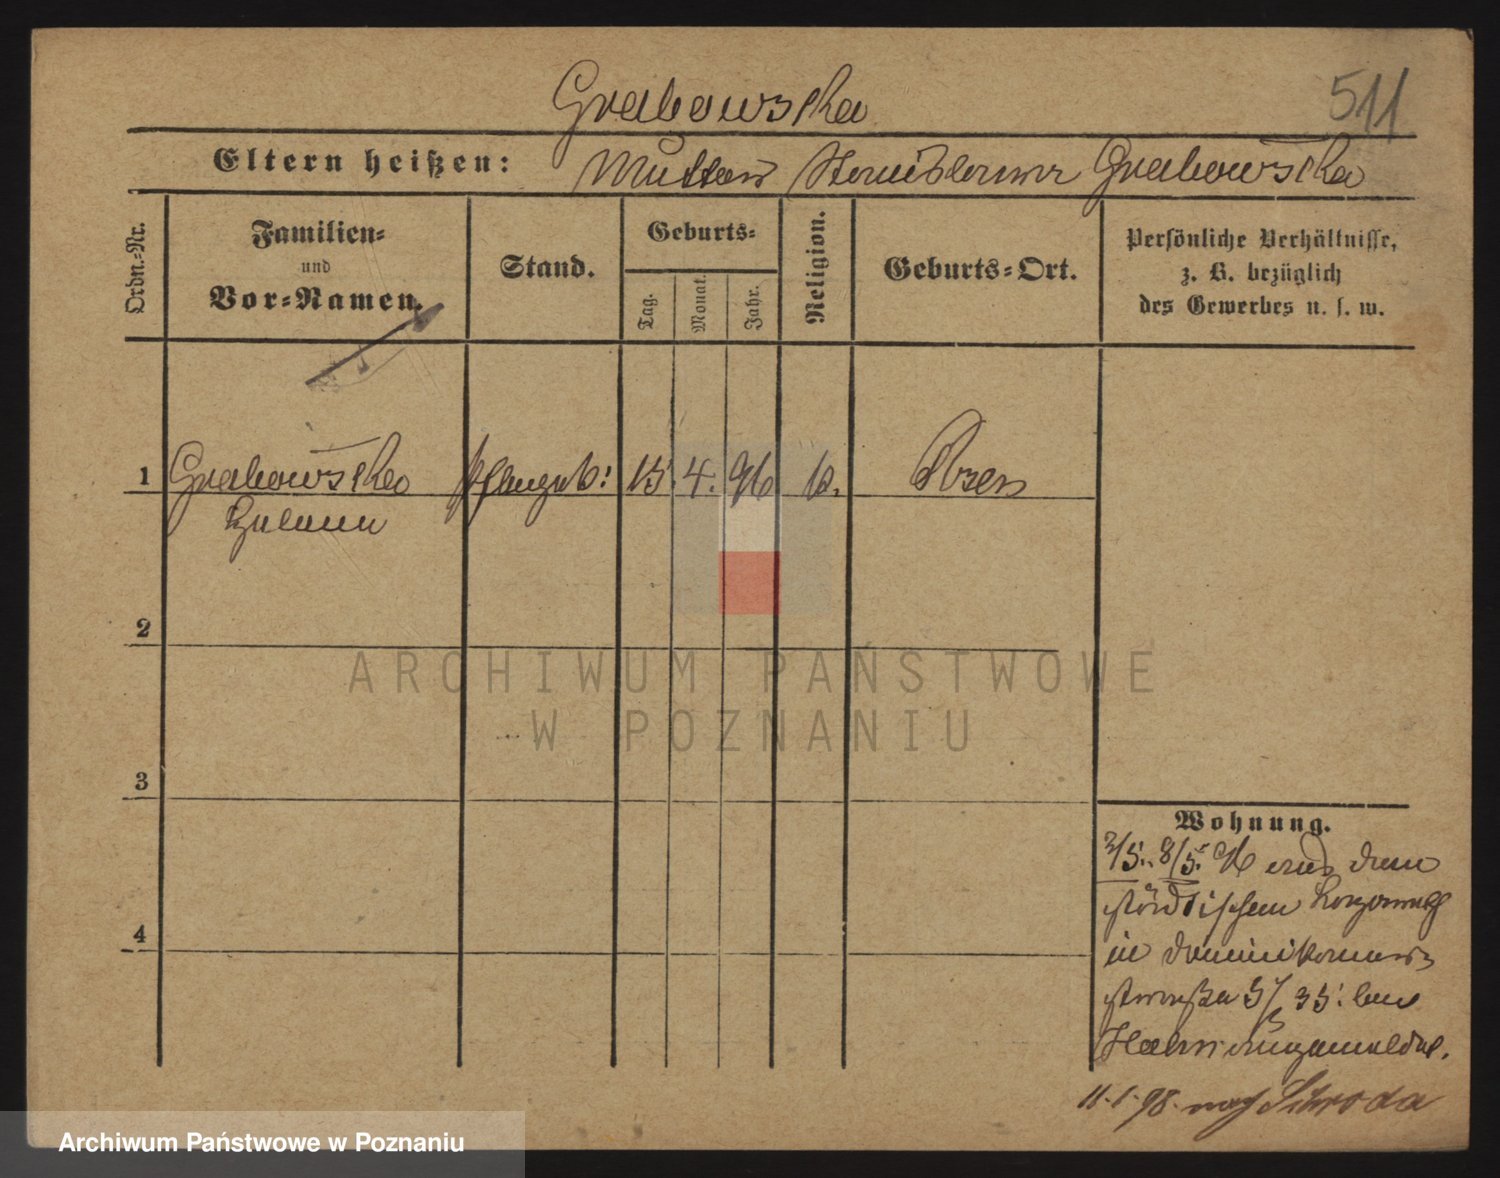 511
Grabowska
Eltern heißen: Mutter Stanislawa Grabowska
Ordn.-Nr.
Familien-
und
Vor-Namen.
Stand.
Geburts-
Tag.
Monat.
Jahr.
Religion.
Geburts-Ort.
Persönliche Verhältnisse,
z. B. bezüglich
des Gewerbes u. s. w.
1 Grabowska Pflegek: 15. 4. 96 k. Posen
Helena
2
3
4
Wohnung.
2/5. 8/5. 96 aus dem
städtischen
in Dominikaner
straße bei
11.1.98. nach Schroda
ARCHIWUM PAŃSTWOWE
W POZNANIU
Archiwum Państwowe w Poznaniu